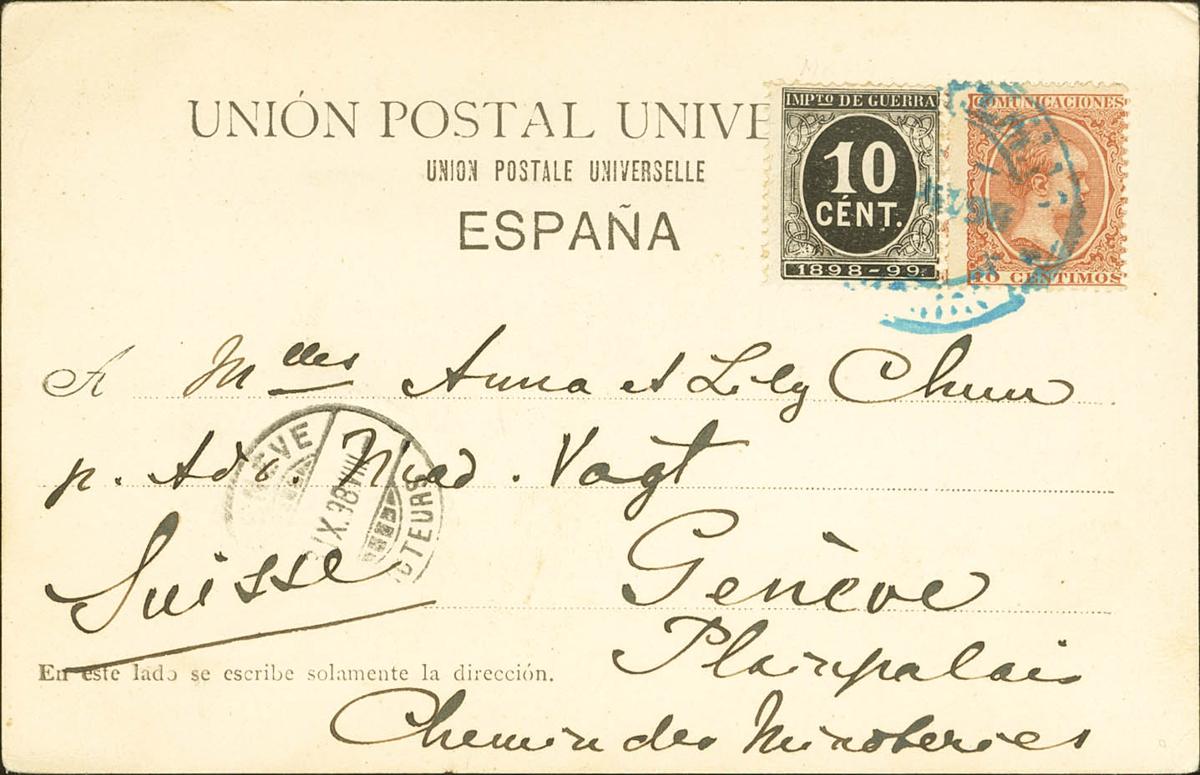 UNIÓN POSTAL UNIVE
UNION POSTALE UNIVERSELLE
ESPAÑA
IMPTO DE GUERRA
10
CÉNT.
1898-99.
COMUNICACIONES
10 CENTIMOS
A Mlles Anna et Lily
p. Adr. Mad. Vogt
Suisse
Genève
Plainpalais
Chemin des
En este lado se escribe solamente la dirección.
IX.98 VIII